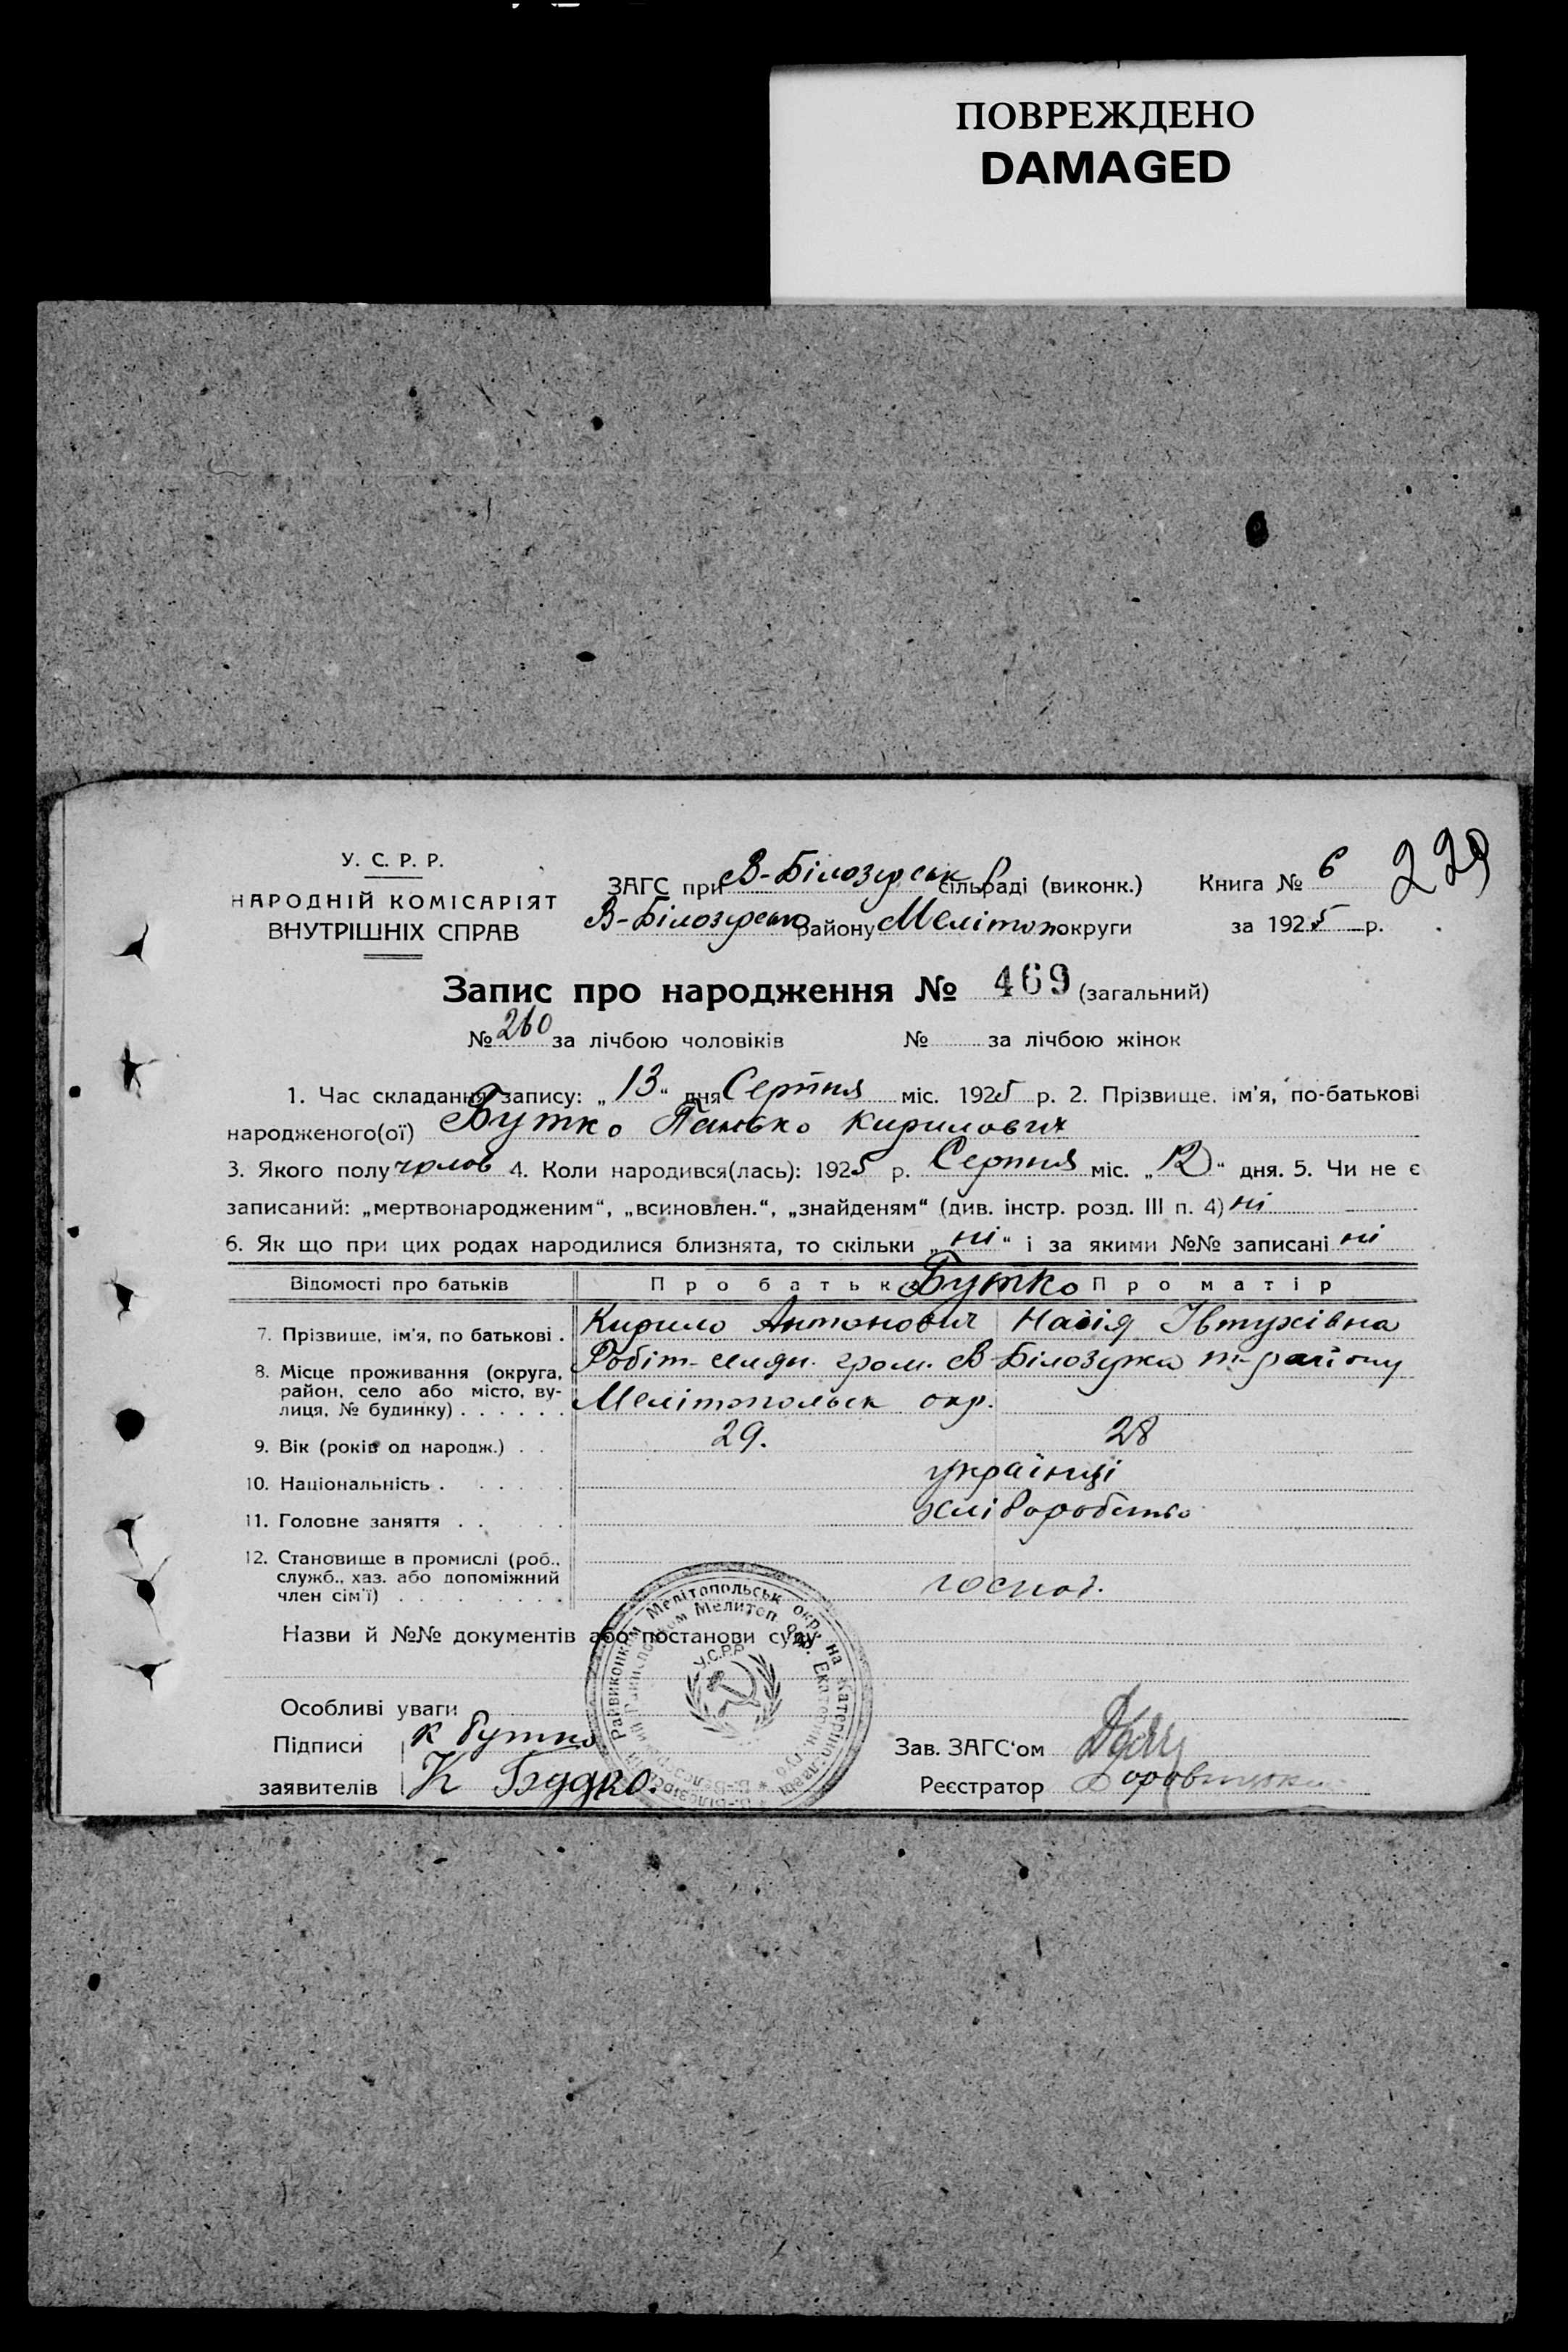 ПОВРЕЖДЕНО
DAMAGED
У. С. Р. Р.
НАРОДНІЙ КОМІСАРІЯТ
ВНУТРІШНІХ СПРАВ
ЗАГС при В-Білозерськ сільраді (виконк.)
В-Білозерськ району Мелітоп округи
Книга № 6
229
за 1925 р.
Запис про народження № 469 (загальний)
№ 260 за лічбою чоловіків № за лічбою жінок
1. Час складання запису: „13“ дня Серпня міс. 1925 р. 2. Прізвище, ім'я, по-батькові
народженого(ої) Бутко Панько Кирилович
3. Якого полу чолов 4. Коли народився(лась): 1925 р. Серпня міс. „12“ дня. 5. Чи не є
записаний: „мертвонародженим“, „всиновлен.“, „знайденям“ (див. інстр. розд. III п. 4) ні
6. Як що при цих родах народилися близнята, то скільки „ні“ і за якими №№ записані ні
Відомості про батьків Про батька Бутко Про матір
7. Прізвище, ім'я, по батькові . Кирило Антонович Надія Івтухівна
8. Місце проживання (округа, район, село або місто, вулиця, № будинку) . . . . . . Робіт-селян. гром. В-Білозерка т-району
Мелітопольск окр.
9. Вік (років од народж.) . . 29. 28
10. Національність . . . . . українці
11. Головне заняття . . . . хліборобство
12. Становище в промислі (роб., служб., хаз. або допоміжний член сім'ї) . . . . . . . господ.
Назви й №№ документів або постанови суду
Особливі уваги
Підписи К Бутко
заявителів К Будко.
Зав. ЗАГС'ом
Реєстратор
У.С.Р.Р.
Райвиконком Мелітопольськ окр. на Катеринославщ